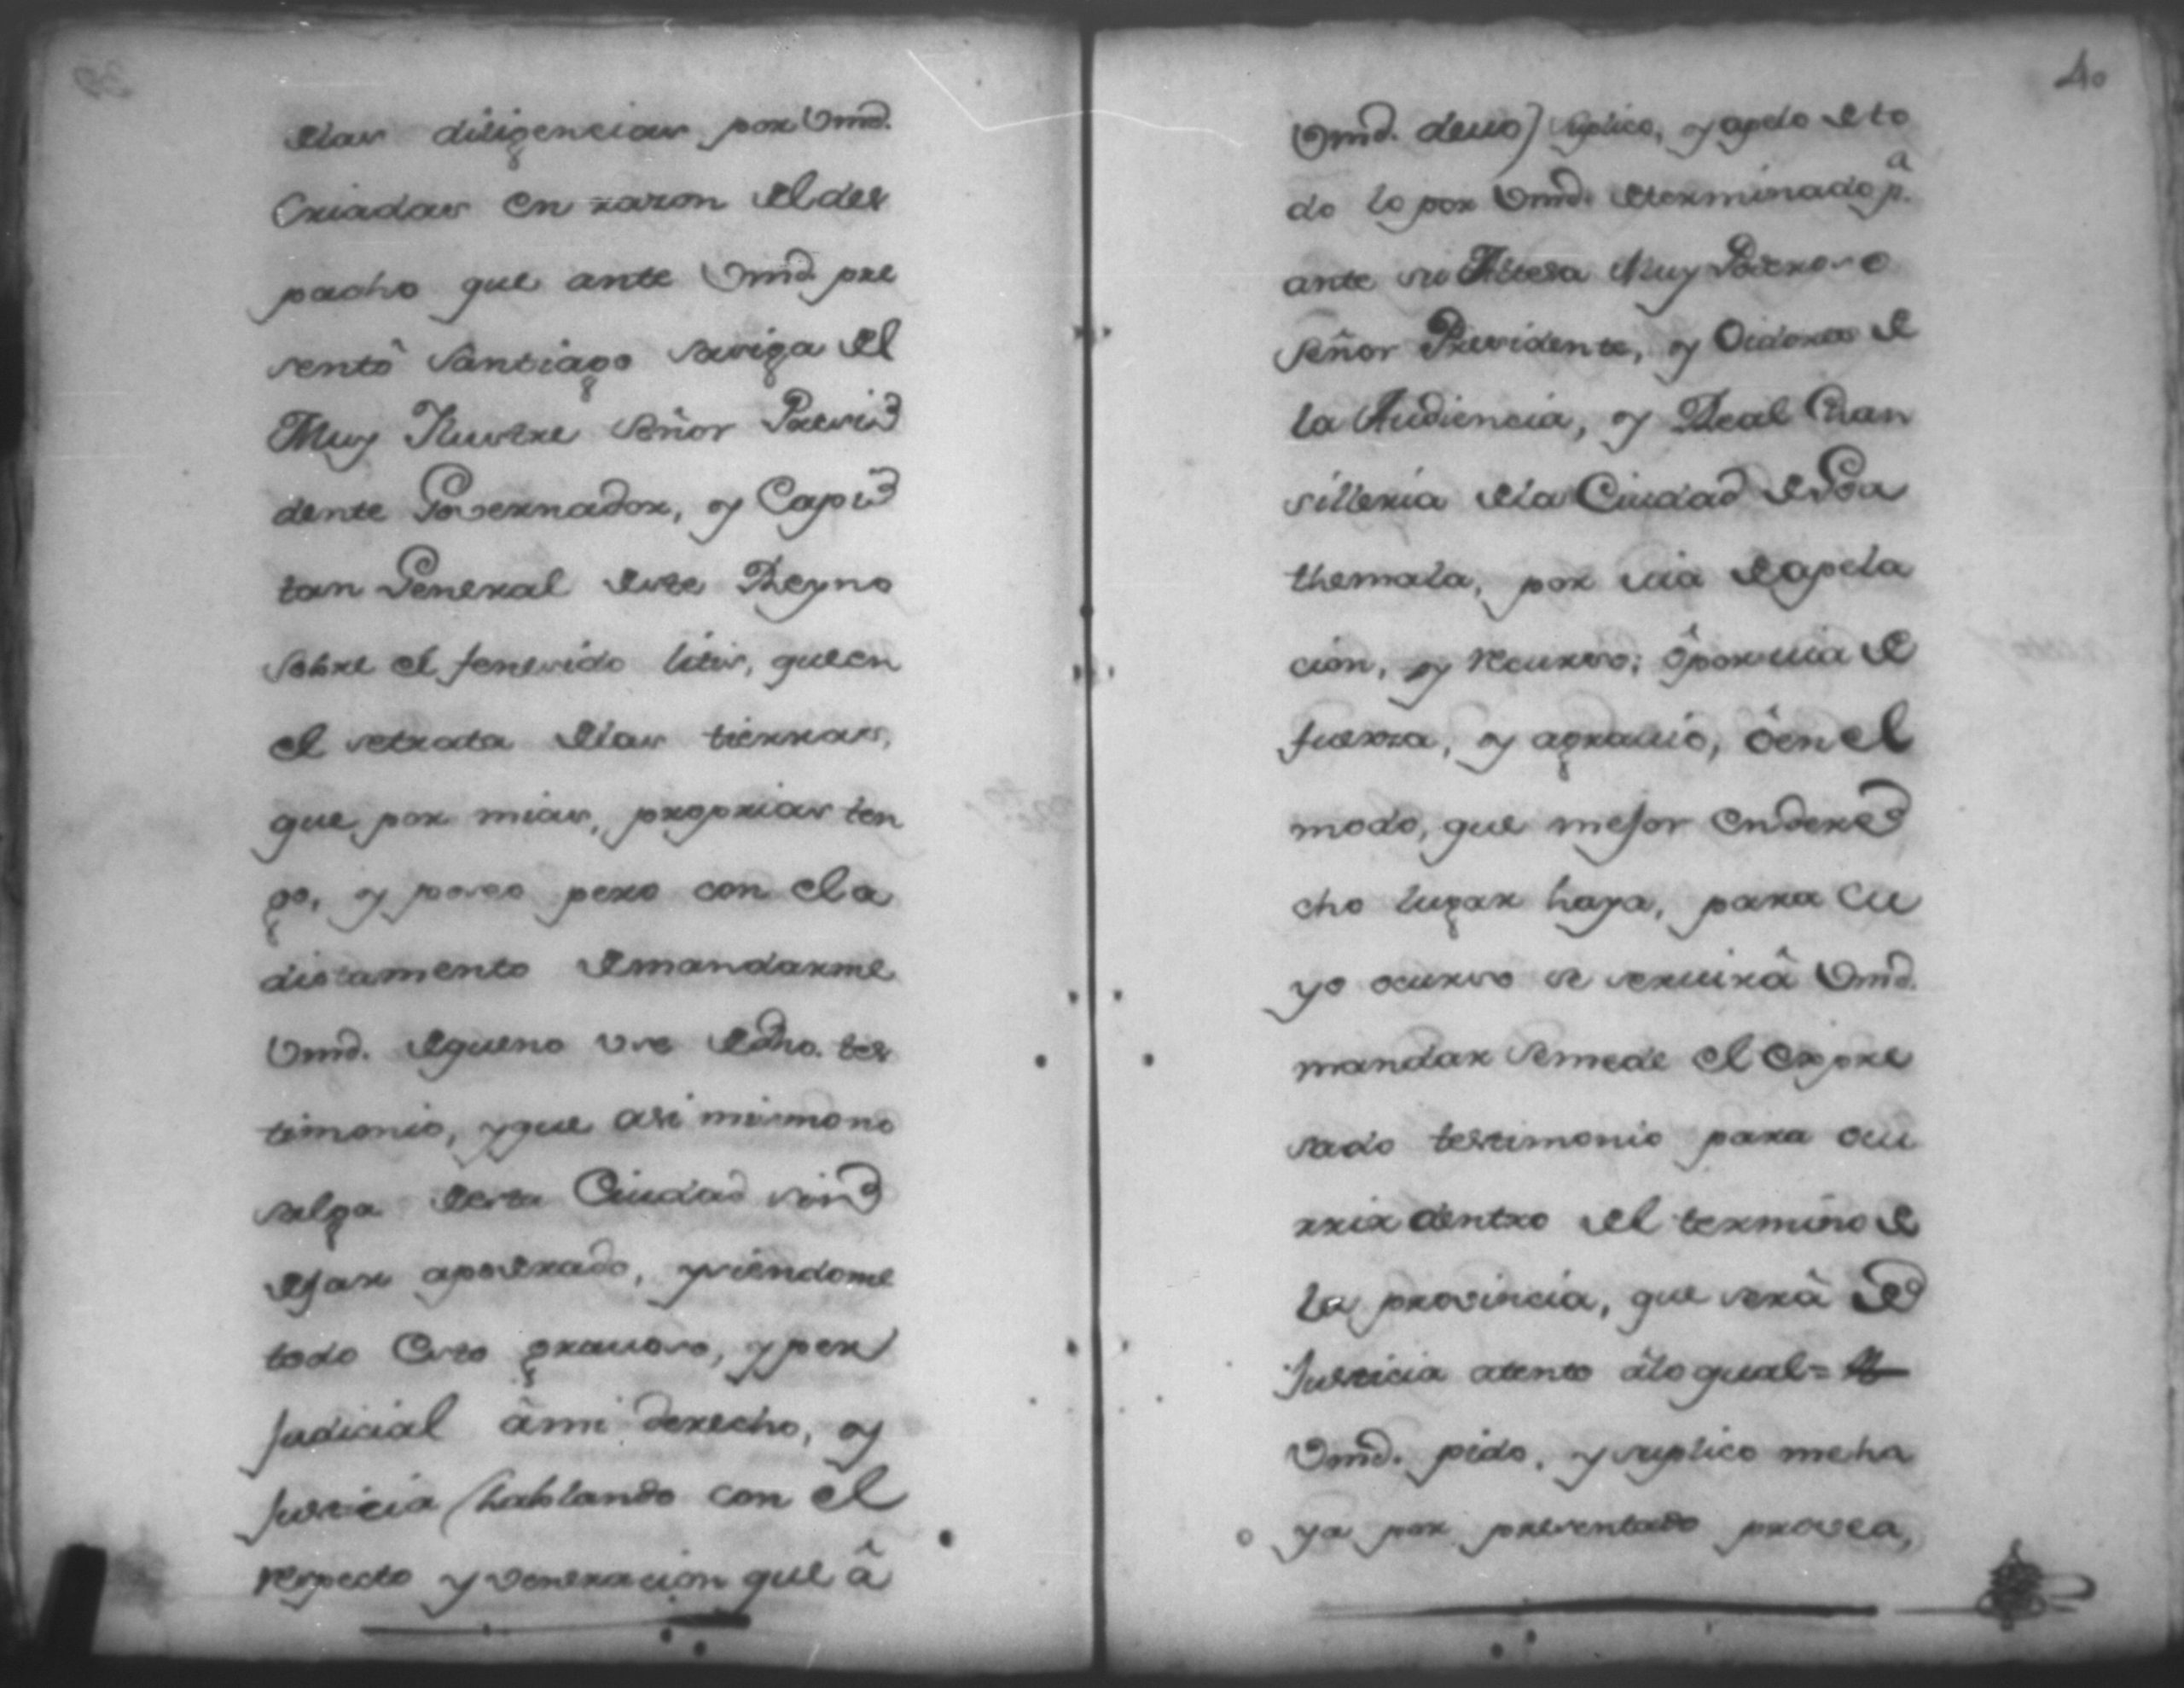 delas diligencias por Vmd.
Criadas en razon del des
pacho que ante Vmd. pre
sentô Santiago Sariga del
Muy Ilustre Señor Presi
dente Governador, y Capi
tan General deste Reyno
Sobre el fenesido litis, que en
el setrata delas tierras,
que por mias, proprias ten
go, y poseo pero con el a
ditamento demandarme
Vmd. deque no use de dho. tes
timonio, y que asi mismo no
salga desta Ciudad sin
dejar apoderado, y siendome
todo esto gravoso, y per
Judicial âmi derecho, y
Justicia (hablando con el
respecto y veneracion que â
40
Vmd. devo) suplico, y apelo de to
do lo por Vmd. determinado pa.
ante su Alteza Muy Poderoso
Señor Presidente, y Oidores de
la Audiencia, y Real Chan
silleria dela Ciudad de Goa
themala, por via de apela
cion, y recurso; ô por via de
fuerza, y agravio, ô en el
modo, que mejor en dere
cho lugar haya, para cu
yo ocurso se servirâ Vmd.
mandar semede el expre
sado testimonio para ocu
rrir dentro del termino de
la provincia, que serâ de
Justicia atento âlo qual=
Vmd. pido, y suplico me ha
ya por presentado provea,